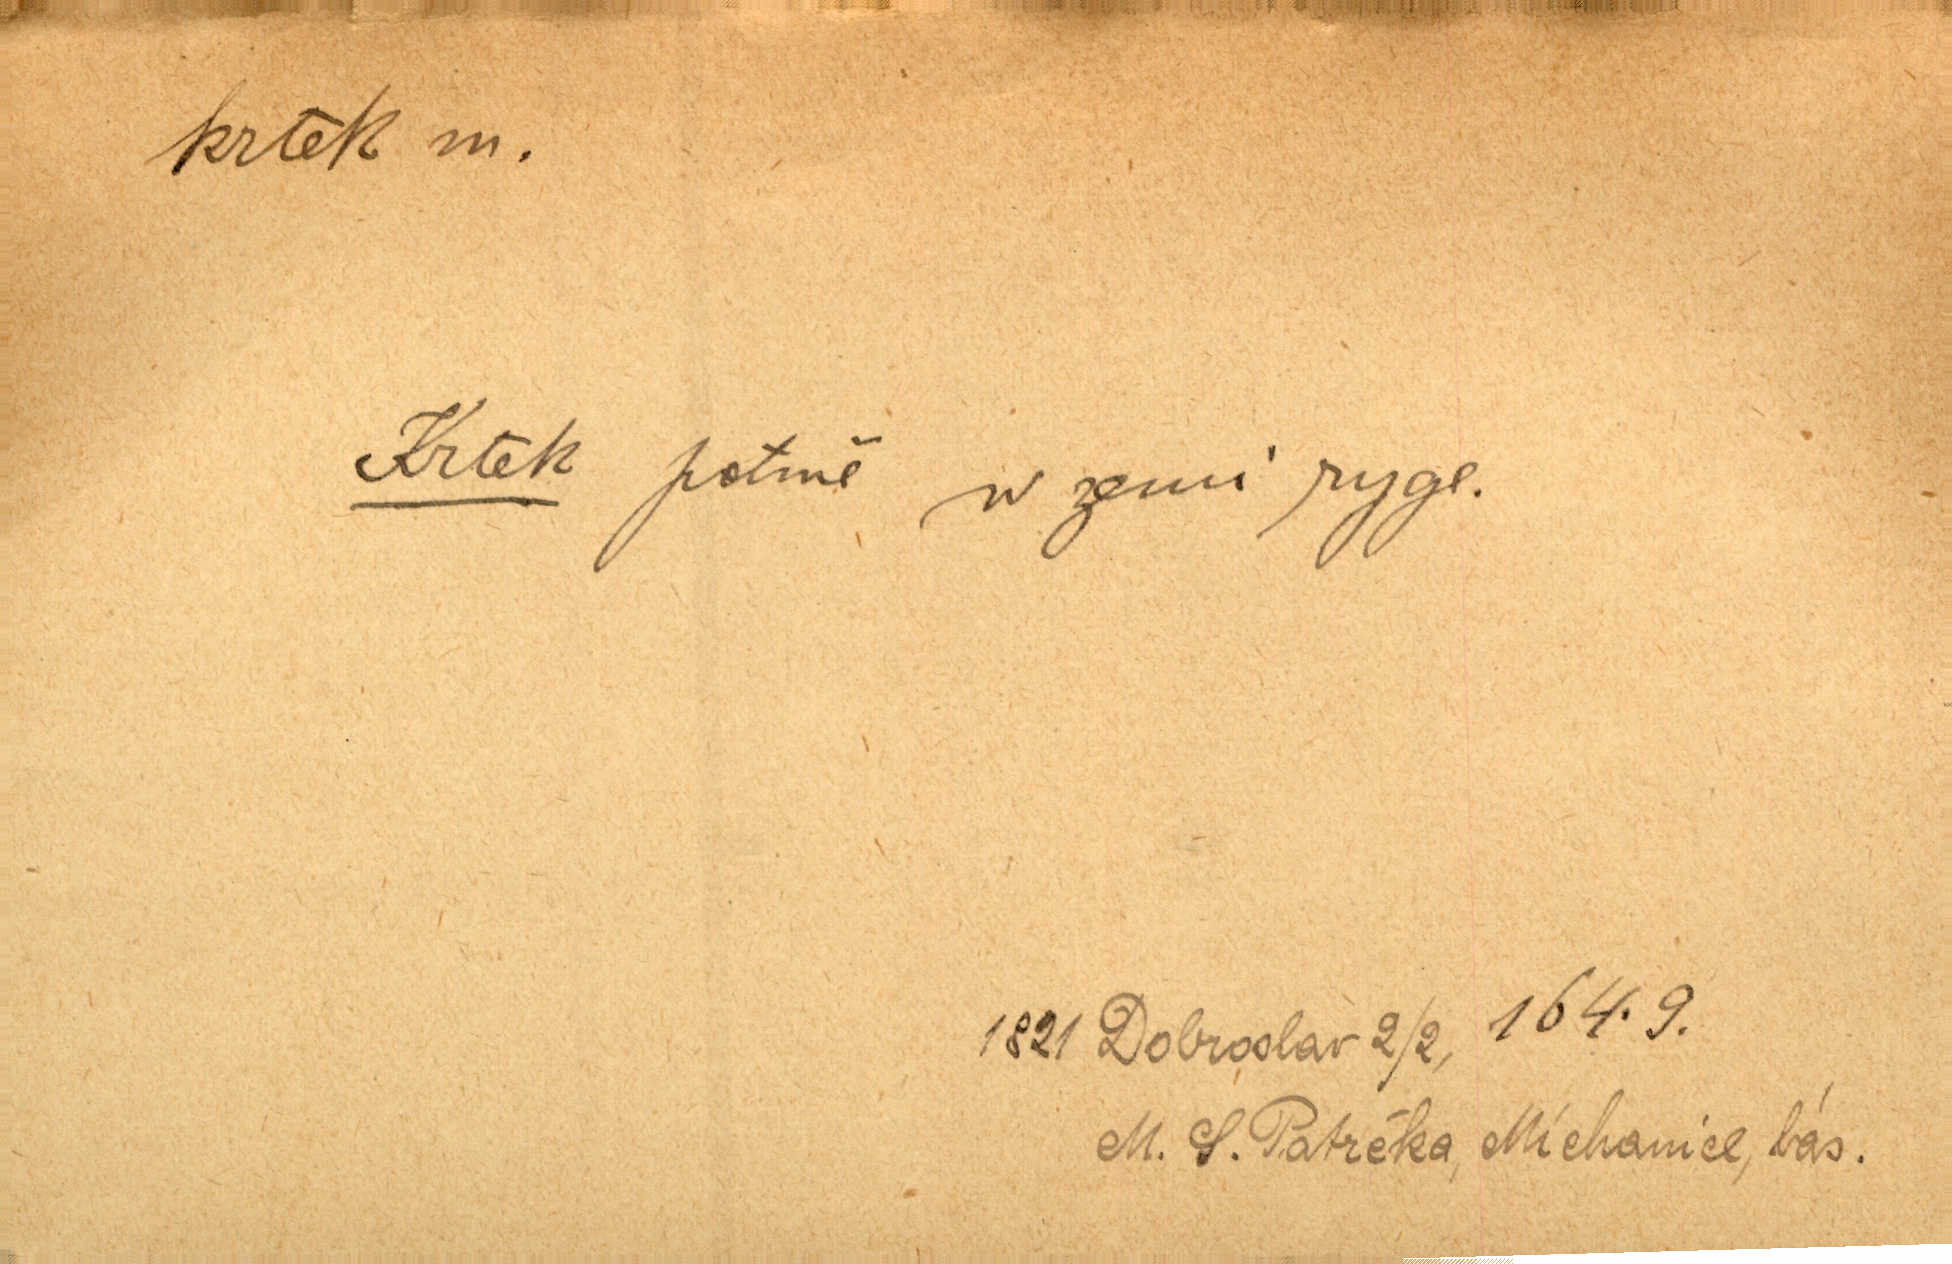 krtek m.
Krtek potmě w zemi ryge.
1821 Dobroslav 2/2, 164. 9.
M. S. Patrčka, Míchanice, bás.